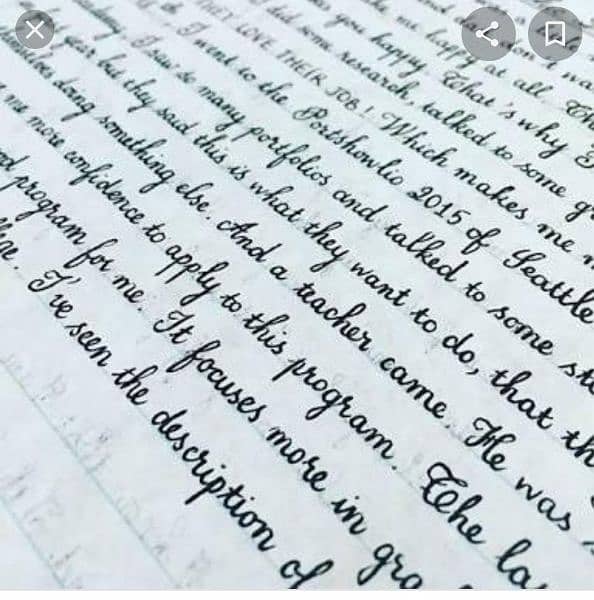 me happy at all.
you happy. That's why I
did some research, talked to some
THEY LOVE THEIR JOB! Which makes me
I went to the Portshowlio 2015 of Seattle
I saw so many portfolios and talked to some
year but they said this is what they want to do, that
doing something else. And a teacher came. He was
me more confidence to apply to this program. The
program for me. It focuses more in
I've seen the description of